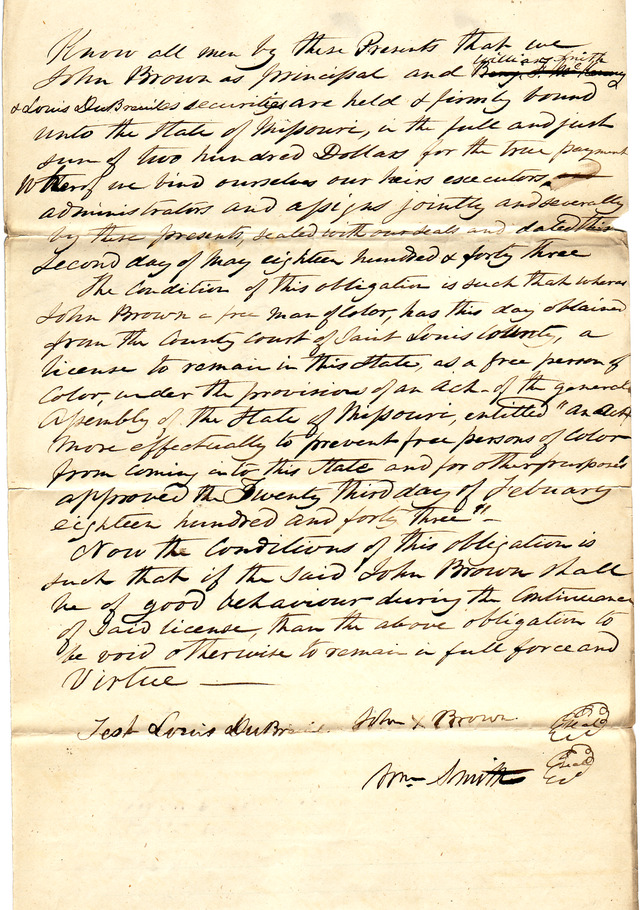 Know all men by these Presents that we
William Smith
John Brown as principal and Benj
& Louis DuBreuil as securities are held & firmly bound
unto the State of Missouri, in the full and just
sum of two hundred Dollars for the true payment
Whereof we bind ourselves our heirs executors, and
administrators and assigns jointly and severally
by these presents, sealed with our seals and dated this
Second day of May eighteen hundred & forty three
The Condition of this obligation is such that whereas
John Brown a free man of Color, has this day obtained
from the County Court of Saint Louis County, a
license to remain in this State, as a free person of
Color, under the provisions of an Act of the general
Assembly of the State of Missouri, entitled "an Act
more effectually to prevent free persons of Color
from Coming into this State and for other purposes
approved the Twenty third day of Febuary
eighteen hundred and forty three" —
Now the Conditions of this obligation is
such that if the said John Brown shall
be of good behaviour during the Continuance
of said license, than the above obligation to
be void otherwise to remain in full force and
Virtue —
Test Louis DuBreuil John X Brown (Seal)
Wm Smith (Seal)